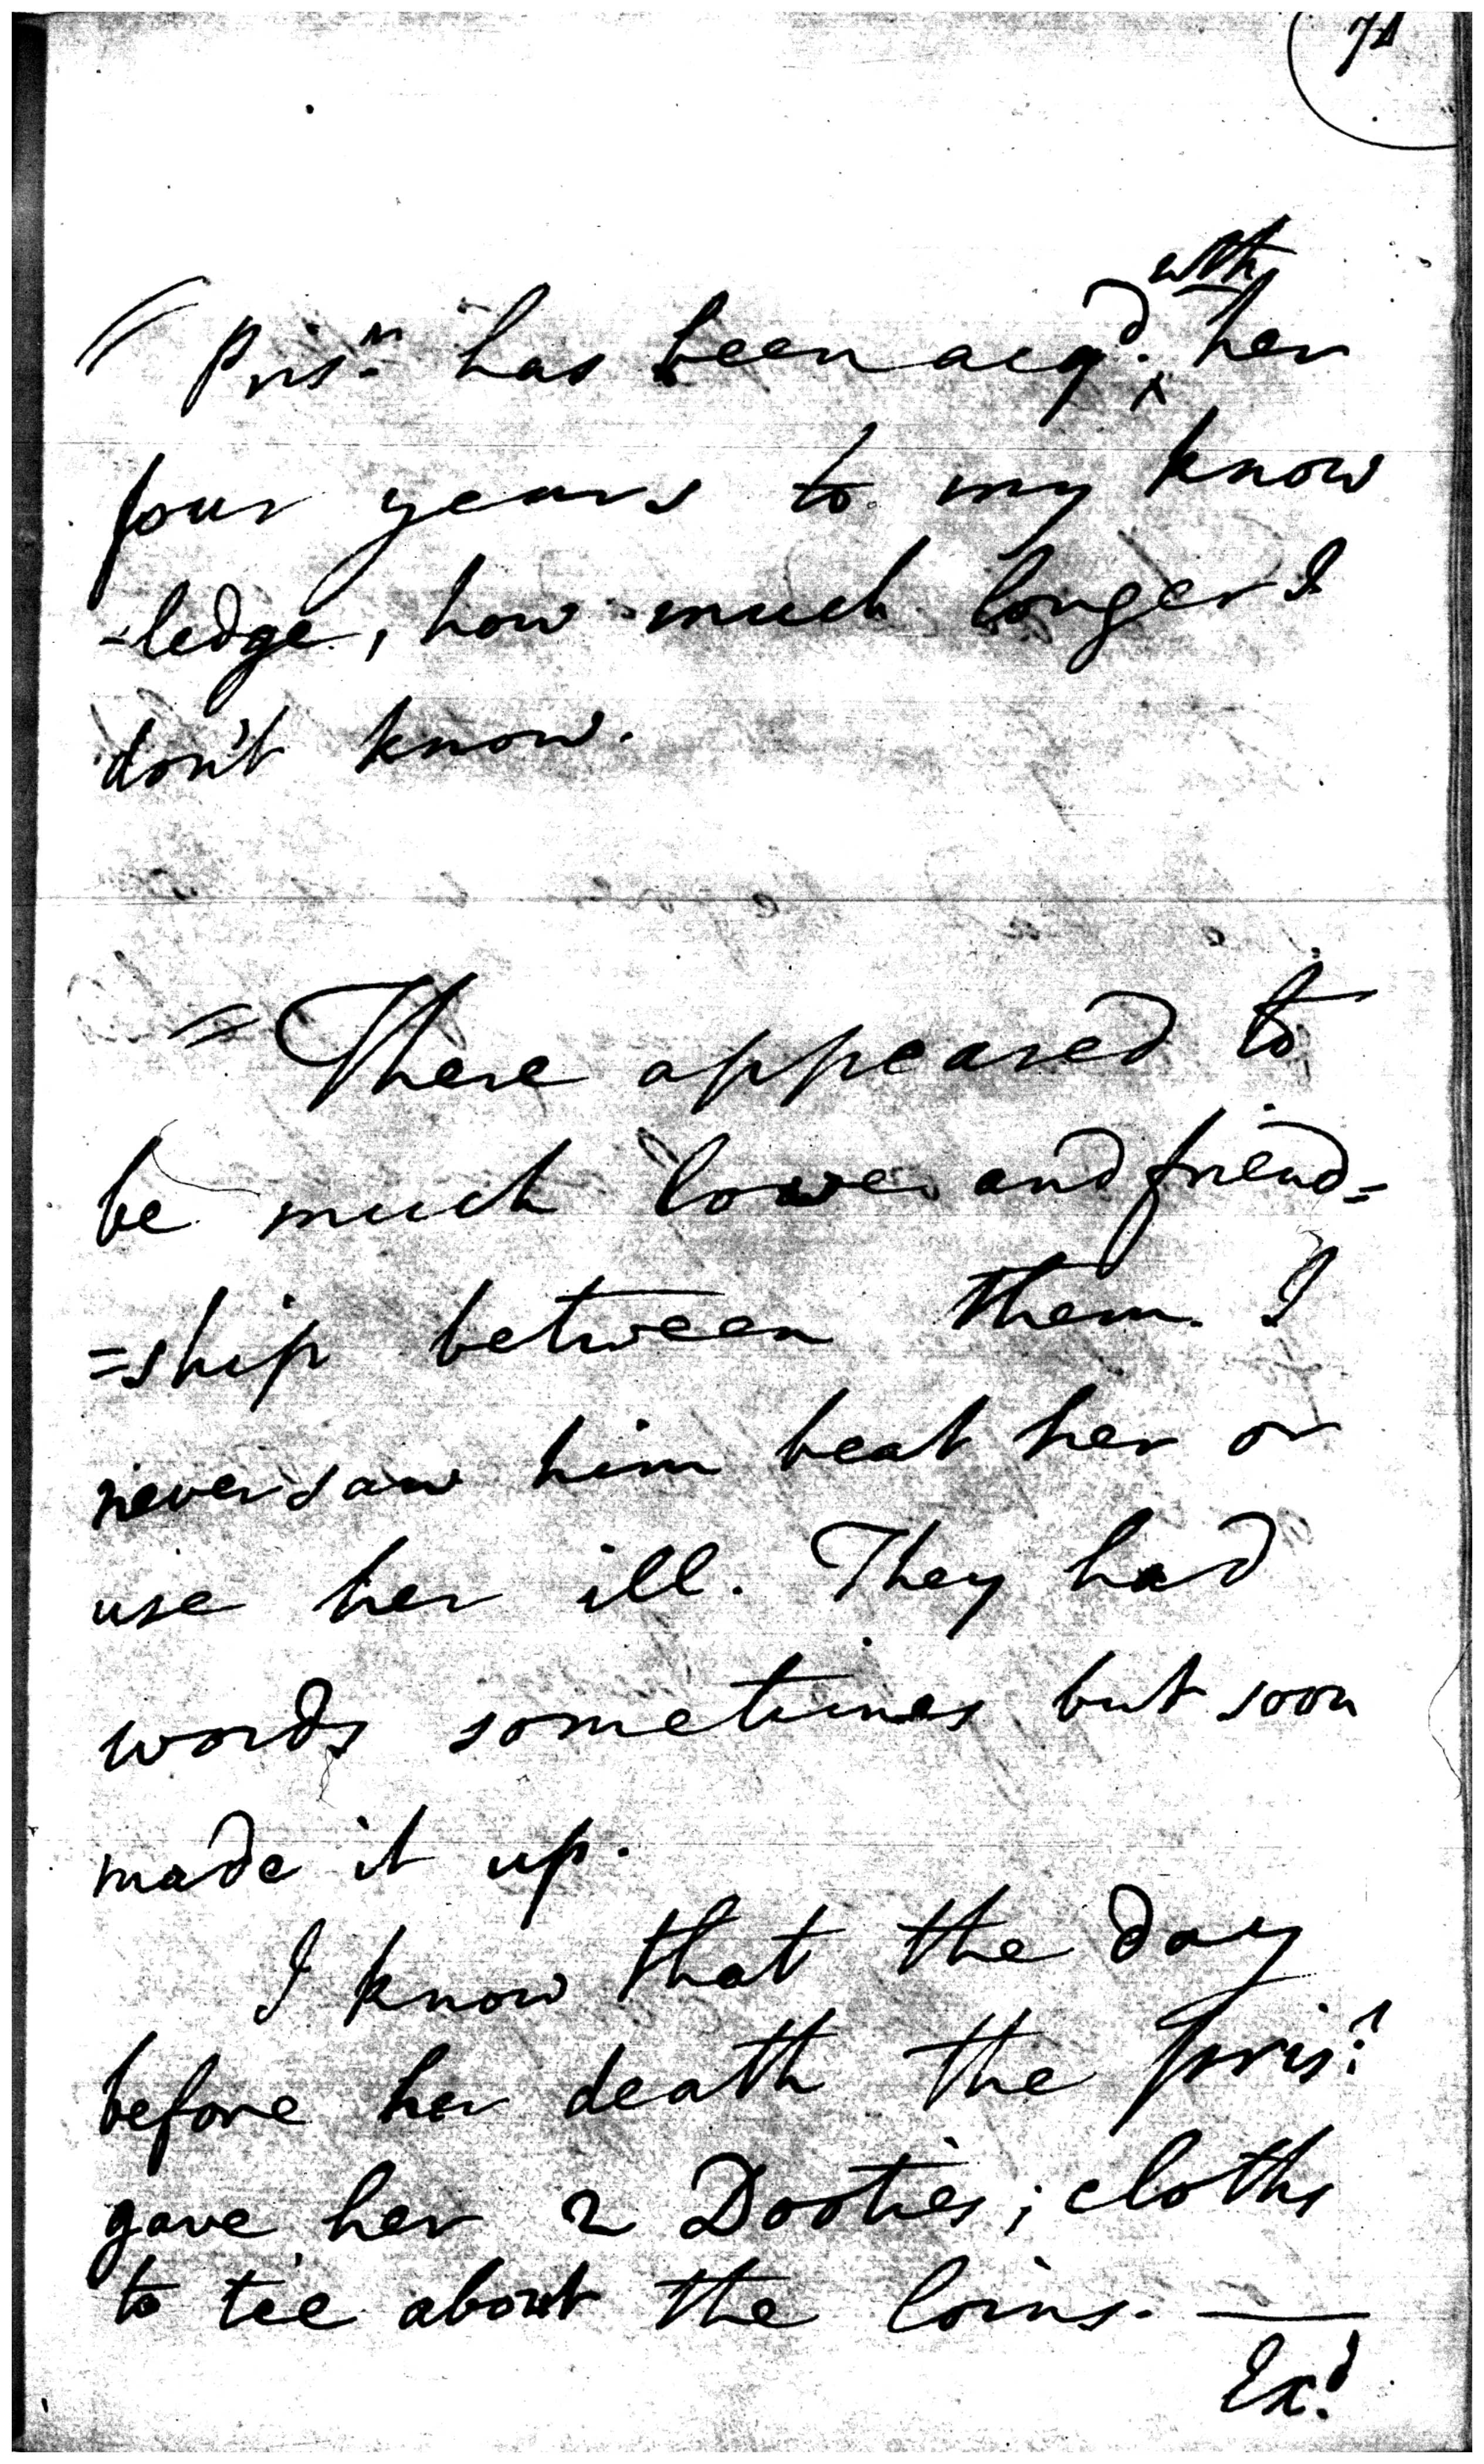 wth
Prisn. has been acqd. ^ her
four years to my know
-ledge, how much longer I
don't know.
= There appeared to
be much love and friend=
=ship between them. I
never saw him beat her or
use her ill. They had
words sometimes but soon
made it up.
I know that the day
before her death the prisr.
gave her 2 Dooties; cloths
to tie about the loins. —
Exd.